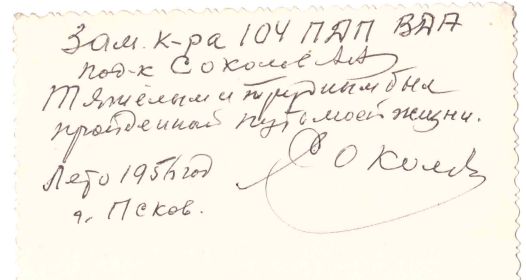 Зам. к-ра 104 ПДП ВДВ
под-к Соколов АА
Тяжёлым и трудным был
пройденный путь моей жизни.
Соколов
Лето 195 год
г. Псков.